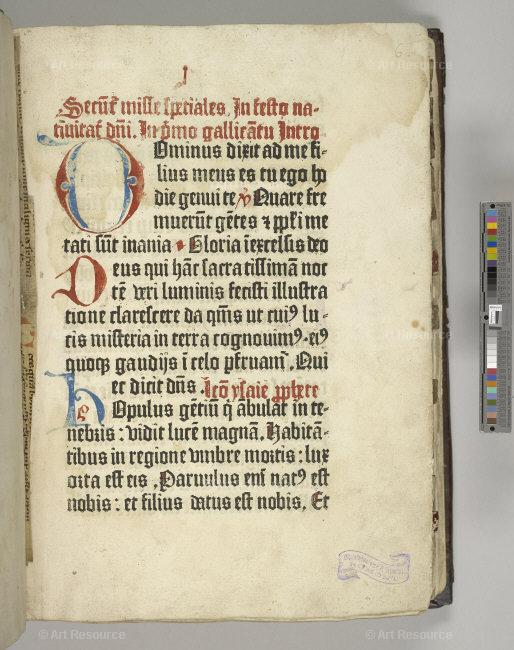 Secūt̄ misse spetiales, In festo na-
tiuitat̄ dn̄i. In p̄mo gallicātu Intro
Ominus dixit ad me fi-
lius meus es tu ego ho
die genui te Quare fre
muerūt gētes ꝛ pp̄li me
tati sūt inania Gloria ī excelsus deo
Deus qui hāc sacratissimam noc
tē veri luminis fecisti illustra
tione clarescere da qm̄s ut cuiꝰ lu-
cis misteria in terra cognouimꝰ. eiꝰ
quoqꝫ gaudijs ī celo pfruam̄. Qui
ec dicit dn̄s. Lcō ysaie ꝓphete
Populus gētiū q̄ abulat̄ in te-
nebris : vidit lucē magnā. Habitā-
tibus in regione vmbre mortis : lux
orta est eis. Paruulus eni natꝰ est
nobis : et filius datus est nobis. Et
© Art Resource
© Art Resource
© Art Resource
© Art Resource